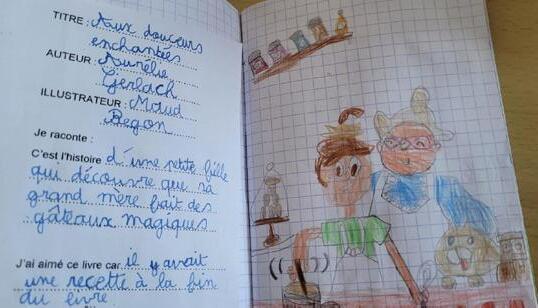 TITRE : Aux douceurs
enchantées
AUTEUR : Aurélie
Gerlach
ILLUSTRATEUR : Maud
Begon
Je raconte :
C'est l'histoire d'une petite fille
qui découvre que sa
grand mère fait des
gâteaux magiques
J'ai aimé ce livre car il y avait
une recette à la fin
du livre